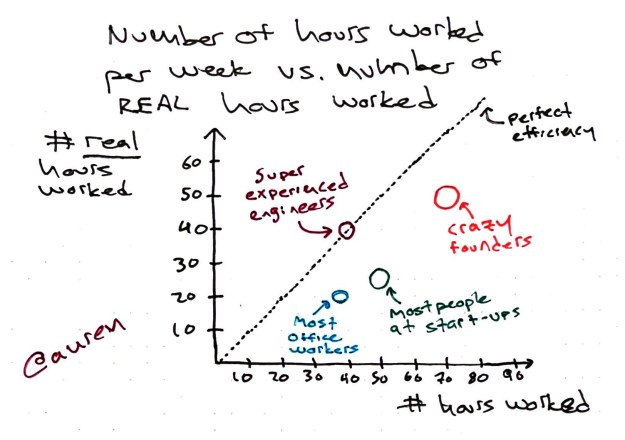 Number of hours worked
per week vs. number of
REAL hours worked
# real
hours
worked
perfect
efficiency
60
50
40
30
20
10
super
experienced
engineers
crazy
founders
Most people
at start-ups
Most
office
workers
@auren
10 20 30 40 50 60 70 80 90
# hours worked